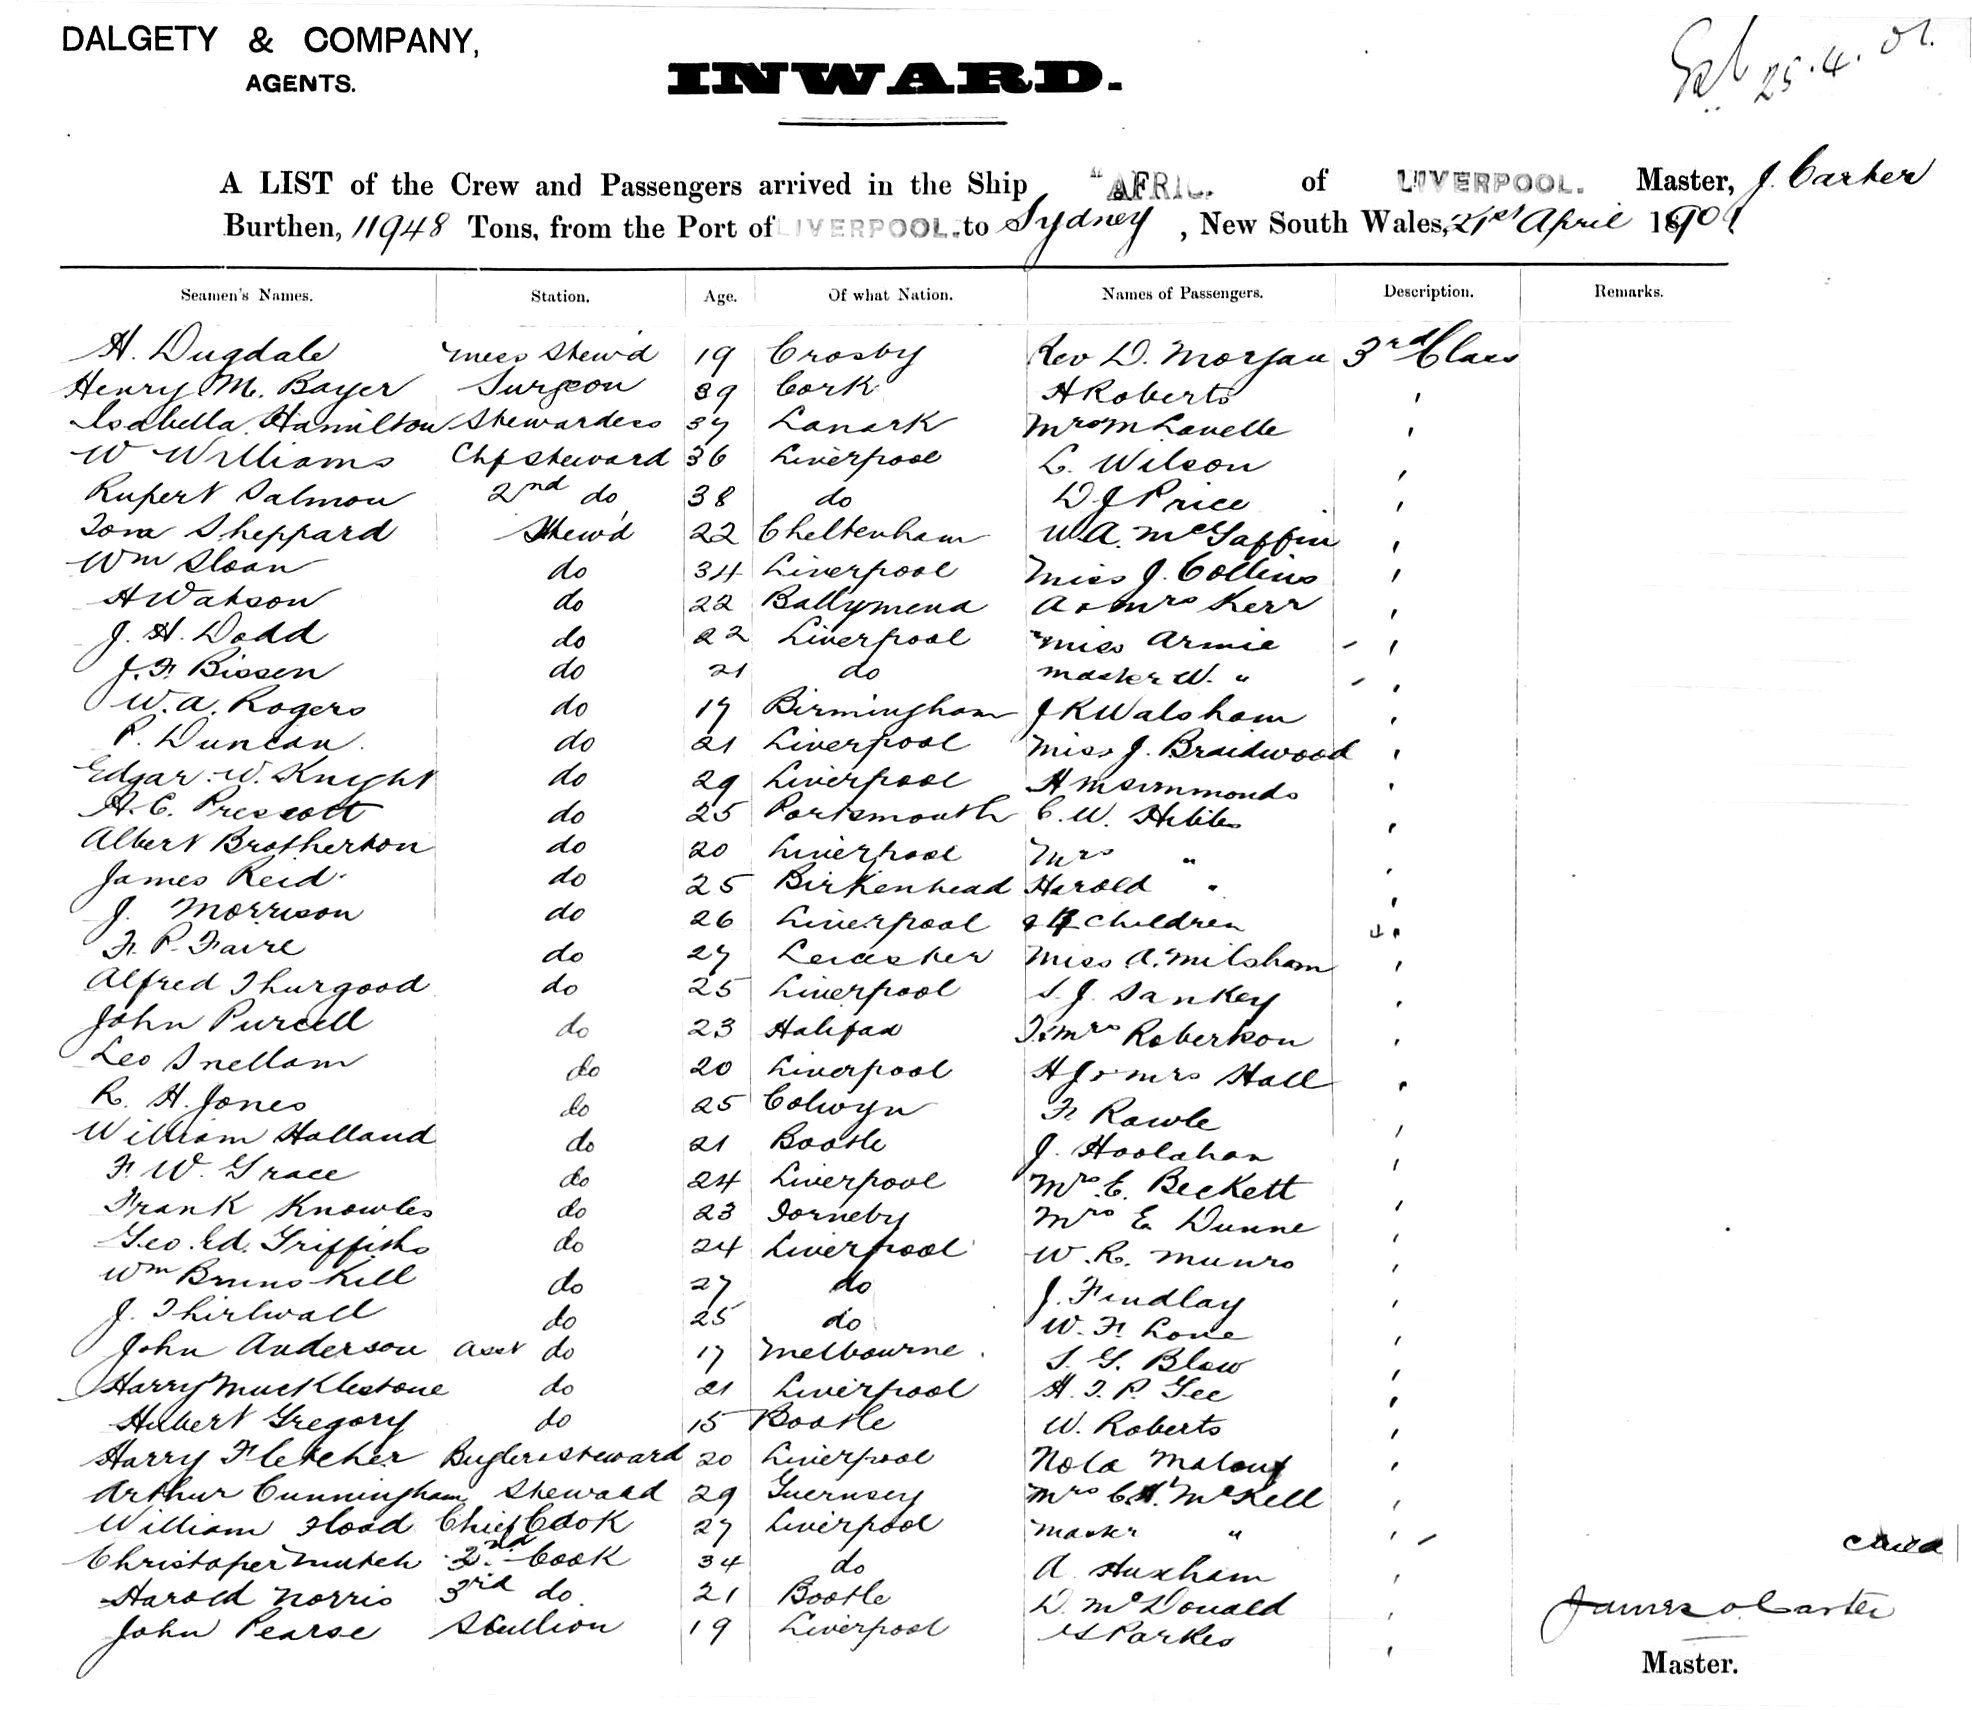 DALGETY & COMPANY,
AGENTS.
INWARD.
25.4.01.
A LIST of the Crew and Passengers arrived in the Ship "AFRIC. of LIVERPOOL. Master, J. Carter
Burthen, 11948 Tons, from the Port of LIVERPOOL. to Sydney, New South Wales, 21st April 1901
Seamen's Names. Station. Age. Of what Nation. Names of Passengers. Description. Remarks.
H. Dugdale Mess Stew'd 19 Crosby Rev D. Morgan 3rd Class
Henry M. Bayer Surgeon 39 Cork H Roberts "
Isabella Hamilton Stewardess 37 Lanark Mrs M Lavelle "
W Williams Chf Steward 36 Liverpool L. Wilson "
Rupert Salmon 2nd do 38 do D J Price "
Tom Sheppard Stew'd 22 Cheltenham W.A. McGaffin "
Wm Sloan do 34 Liverpool Miss J. Collins "
H Watson do 22 Ballymena A & Mrs Kerr "
J. H. Dodd do 22 Liverpool Miss Armie "
J. F. Bissen do 21 do Master W. " "
W. A. Rogers do 17 Birmingham J K Walsham "
P. Duncan do 21 Liverpool Miss J. Braidwood "
Edgar W. Knight do 29 Liverpool H M Simmonds "
H. C. Prescott do 25 Portsmouth C. W. "
Albert Brotherton do 20 Liverpool Mrs " "
James Reid do 25 Birkenhead Harold " "
J. Morrison do 26 Liverpool & 4 Children "
F. P. Faire do 27 Leicester Miss A. Milsham "
Alfred Thurgood do 25 Liverpool S. J. Sankey "
John Purcell do 23 Halifax T & Mrs Robertson "
Leo Snellam do 20 Liverpool H J & Mrs Hall "
R. H. Jones do 25 Colwyn F Rawle "
William Holland do 21 Bootle J. Hoolahan "
F. W. Grace do 24 Liverpool Mrs E. Beckett "
Frank Knowles do 23 Mrs E Dunne "
Geo. Ed. Griffiths do 24 Liverpool W. R. Munro "
Wm Brunskill do 27 do J. Findlay "
J. Thirlwall do 25 do W. F. Love "
John Anderson Asst do 17 Melbourne S. G. Blow "
Harry Mucklestone do 21 Liverpool H. T. P. Gee "
Hubert Gregory do 15 Bootle W. Roberts "
Harry Fletcher Bugler & Steward 20 Liverpool Nola Malouf "
Arthur Cunningham Steward 29 Guernsey Mrs C.H. McKell "
William Flood Chief Cook 27 Liverpool Master " "
Christoper Mutch 2nd Cook 34 do A. Huxham "
Harold Norris 3rd do 21 Bootle D. McDonald "
John Pearse Scullion 19 Liverpool Parkes "
James O. Carter
Master.